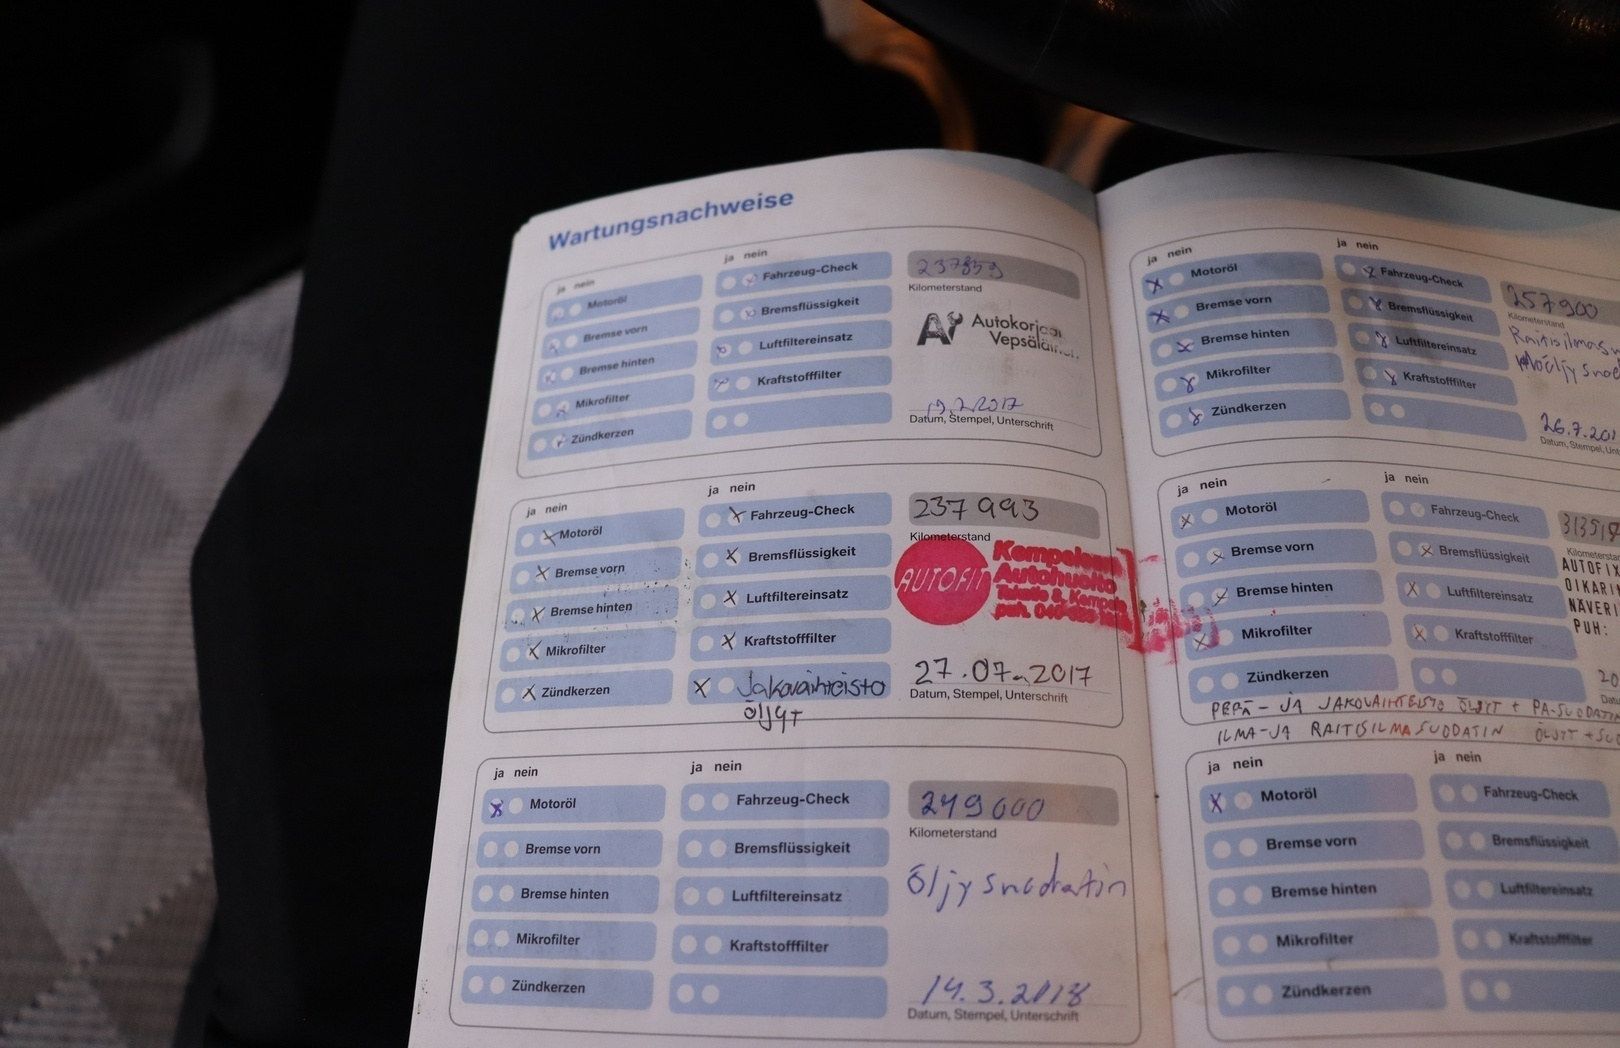 Wartungsnachweise
ja nein
Motoröl
Bremse vorn
Bremse hinten
Mikrofilter
Zündkerzen
ja nein
Fahrzeug-Check
Bremsflüssigkeit
Luftfiltereinsatz
Kraftstofffilter
237859
Kilometerstand
Autokorjaa
Vepsäläinen
19.7.2017
Datum, Stempel, Unterschrift
ja nein
Motoröl
Bremse vorn
Bremse hinten
Mikrofilter
Zündkerzen
ja nein
Fahrzeug-Check
Bremsflüssigkeit
Luftfiltereinsatz
Kraftstofffilter
Jakovaihteisto
öljyt
237993
Kilometerstand
AUTOFIT
Kempeleen
Autohuolto
27.07.2017
Datum, Stempel, Unterschrift
ja nein
Motoröl
Bremse vorn
Bremse hinten
Mikrofilter
Zündkerzen
ja nein
Fahrzeug-Check
Bremsflüssigkeit
Luftfiltereinsatz
Kraftstofffilter
249000
Kilometerstand
Öljysuodatin
14.3.2018
Datum, Stempel, Unterschrift
ja nein
Motoröl
Bremse vorn
Bremse hinten
Mikrofilter
Zündkerzen
ja nein
Fahrzeug-Check
Bremsflüssigkeit
Luftfiltereinsatz
Kraftstofffilter
257900
Kilometerstand
Raitisilmas
26.7.201
Datum, Stempel, Unt
ja nein
Motoröl
Bremse vorn
Bremse hinten
Mikrofilter
Zündkerzen
ja nein
Fahrzeug-Check
Bremsflüssigkeit
Luftfiltereinsatz
Kraftstofffilter
Kilometersta
AUTOFIX
OIKARIN
NÄVERI
PUH:
20
Datu
PERÄ- JA JAKOVAIHTEISTO ÖLJYT + PA-SUODATIN
ILMA-JA RAITISILMASUODATIN ÖLJYT + SUO
ja nein
Motoröl
Bremse vorn
Bremse hinten
Mikrofilter
Zündkerzen
ja nein
Fahrzeug-Check
Bremsflüssigkeit
Luftfiltereinsatz
Kraftstofffilter